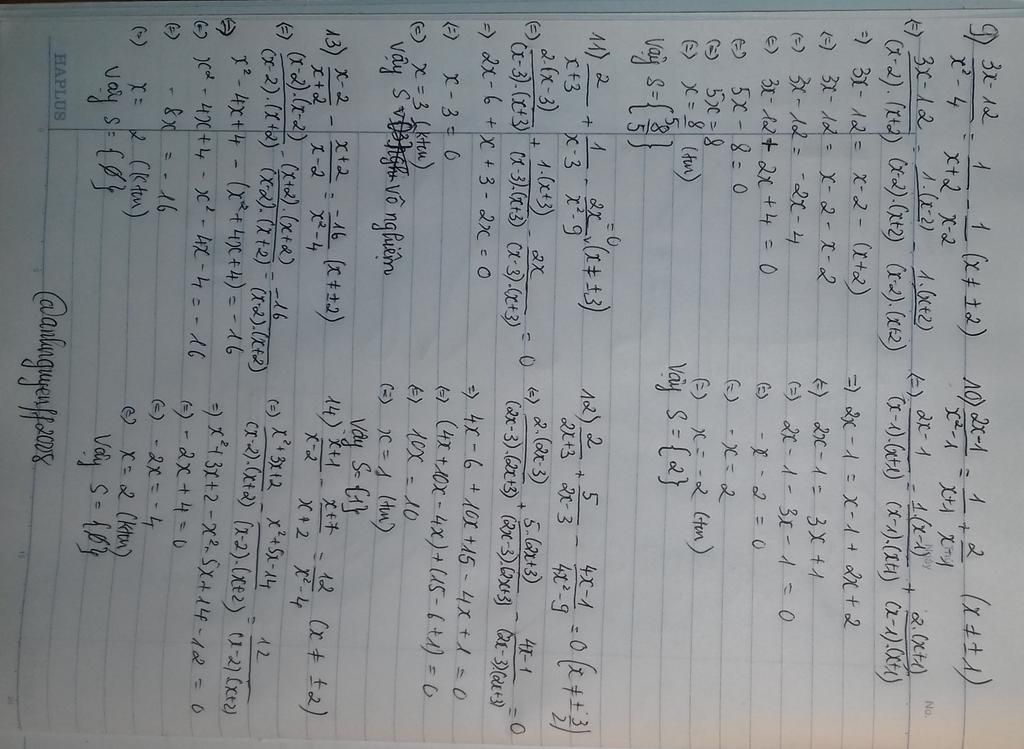 No.
9) (3x-12)/(x²-4) = 1/(x+2) - 1/(x-2) (x ≠ ±2)
(=) (3x-12)/((x-2).(x+2)) = 1.(x-2)/((x-2).(x+2)) - 1.(x+2)/((x-2).(x+2))
=) 3x-12 = x-2-(x+2)
(=) 3x-12 = x-2-x-2
(=) 3x-12 = -2x-4
(=) 3x-12+2x+4 = 0
(=) 5x-8=0
(=) 5x=8
(=) x=8/5 (tm)
Vậy S={8/5}
10) (2x-1)/(x²-1) = 1/(x+1) + 2/(x-1) (x ≠ ±1)
(=) (2x-1)/((x-1).(x+1)) = 1(x-1)/((x-1).(x+1)) + 2.(x+1)/((x-1).(x+1))
=) 2x-1 = x-1+2x+2
(=) 2x-1 = 3x+1
(=) 2x-1-3x-1 = 0
(=) -x-2=0
(=) -x=2
(=) x=-2 (tm)
Vậy S={2}
11) 2/(x+3) + 1/(x-3) - 2x/(x²-9) =0 (x≠±3)
(=) 2(x-3)/((x-3).(x+3)) + 1.(x+3)/((x-3).(x+3)) - 2x/((x-3).(x+3)) = 0
=) 2x-6+x+3-2x=0
(=) x-3=0
(=) x=3 (ktm)
Vậy S vô nghiệm
12) 2/(2x+3) + 5/(2x-3) - (4x-1)/(4x²-9) = 0 (x≠±3/2)
(=) 2.(2x-3)/((2x-3).(2x+3)) + 5.(2x+3)/((2x-3).(2x+3)) - (4x-1)/((2x-3)(2x+3)) = 0
=) 4x-6+10x+15-4x+1=0
(=) (4x+10x-4x)+(15-6+1)=0
(=) 10x=10
(=) x=1 (tm)
Vậy S={1}
13) (x-2)/(x+2) - (x+2)/(x-2) = -16/(x²-4) (x≠±2)
(=) (x-2).(x-2)/((x-2).(x+2)) - (x+2).(x+2)/((x-2).(x+2)) = -16/((x-2).(x+2))
=) x²-4x+4-(x²+4x+4)=-16
(=) x²-4x+4-x²-4x-4=-16
(=) -8x=-16
(=) x=2 (ktm)
Vậy S={Ø}
14) (x+1)/(x-2) - (x+7)/(x+2) = 12/(x²-4) (x≠±2)
(=) (x²+3x+2)/((x-2).(x+2)) - (x²+5x-14)/((x-2).(x+2)) = 12/((x-2)(x+2))
=) x²+3x+2-x²-5x+14-12=0
(=) -2x+4=0
(=) -2x=-4
(=) x=2 (ktm)
Vậy S={Ø}
@anhnguyenff2018
HAPLUS